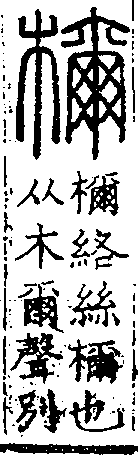 檷
檷絡絲檷也
从木爾聲別